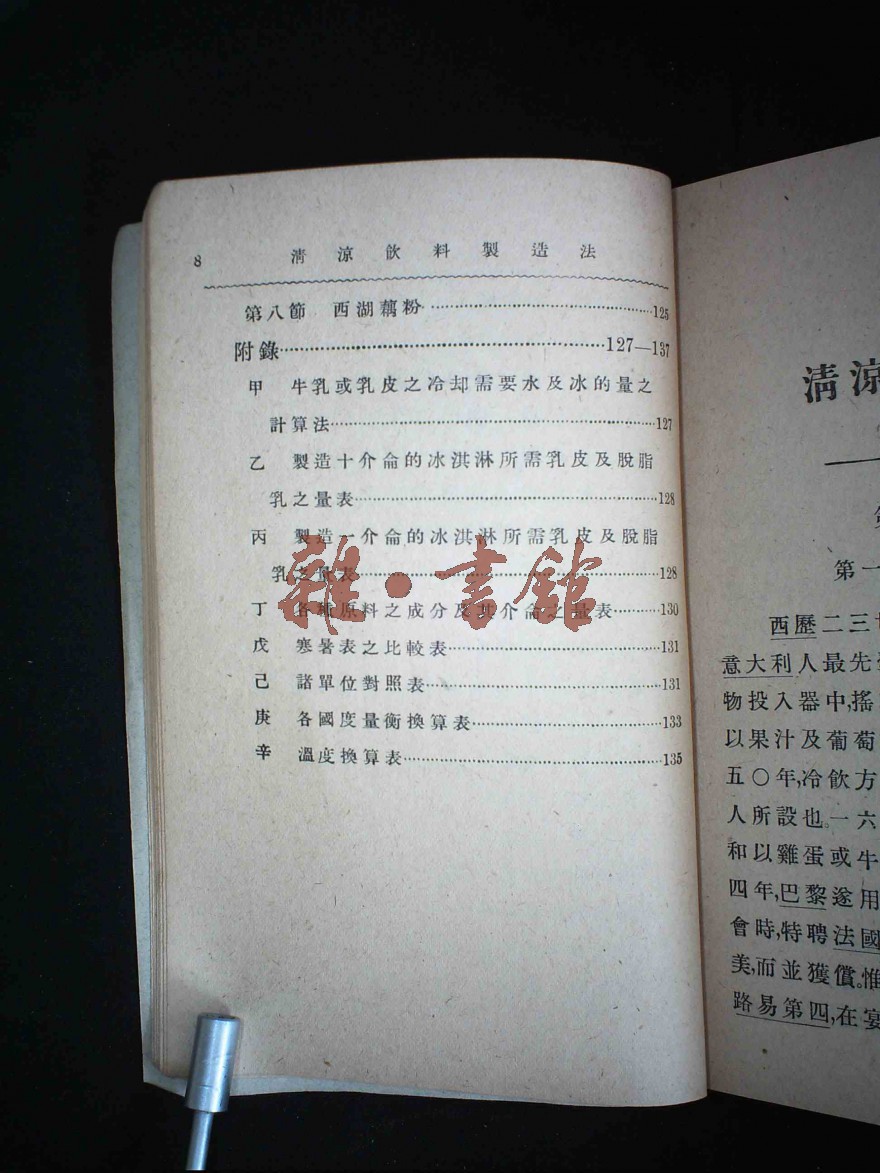 8 清涼飲料製造法
第八節 西湖藕粉……………………………125
附錄……………………………………127—137
甲 牛乳或乳皮之冷却需要水及冰的量之
計算法……………………………………127
乙 製造十介侖的冰淇淋所需乳皮及脫脂
乳之量表…………………………………128
丙 製造一介侖的冰淇淋所需乳皮及脫脂
乳之量表…………………………………128
丁 各種原料之成分及其介侖之量表………130
戊 寒暑表之比較表…………………………131
己 諸單位對照表……………………………131
庚 各國度量衡換算表………………………133
辛 溫度換算表………………………………135
雜·書館
清涼
第一
西歷二三
意大利人最先
物投入器中,搖
以果汁及葡萄
五〇年,冷飲方
人所設也。一六
和以雞蛋或牛
四年,巴黎遂用
會時,特聘法國
美,而並獲償。惟
路易第四,在宴